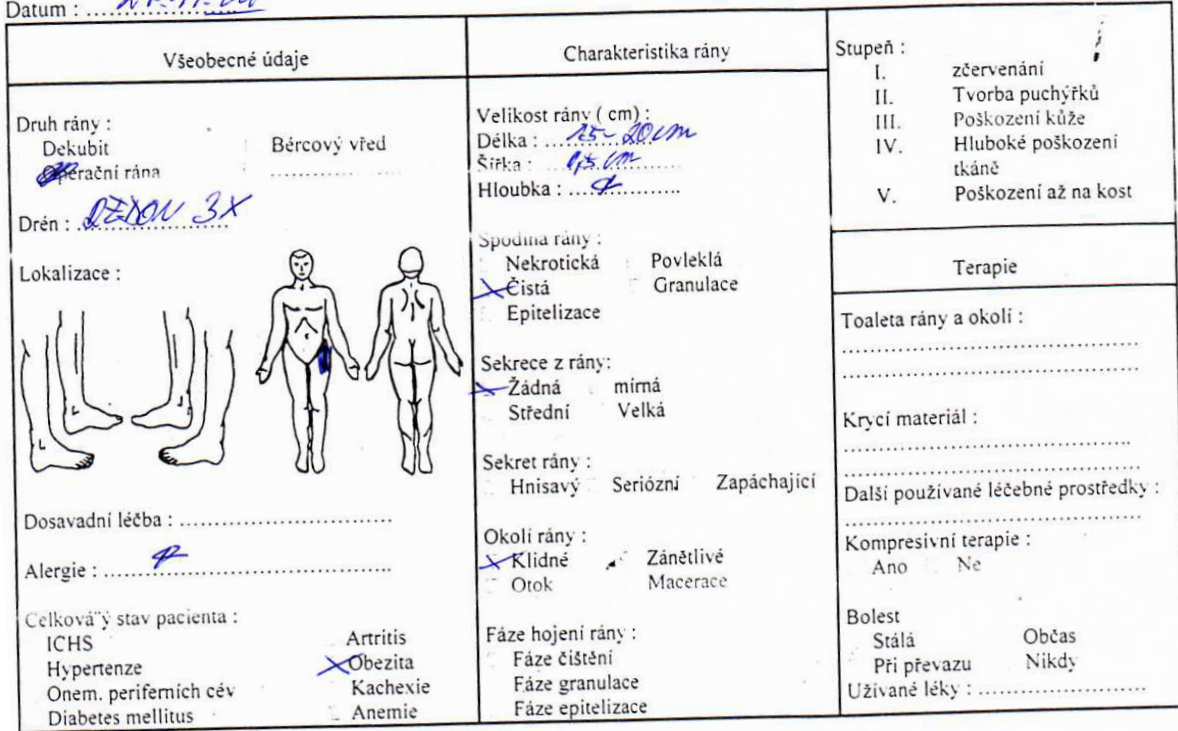 Datum :
Všeobecné údaje
Druh rány :
Dekubit Bércový vřed
Operační rána ....................
Drén : REDON 3X
Lokalizace :
Dosavadní léčba : ................................
Alergie : ...........................................
Celková¨ý stav pacienta :
ICHS Artritis
Hypertenze Obezita
Onem. periferních cév Kachexie
Diabetes mellitus Anemie
Charakteristika rány
Velikost rány ( cm) :
Délka : 15-20 cm
Šířka : 0,5 cm
Hloubka : .................
Spodina rány :
Nekrotická Povleklá
Čistá Granulace
Epitelizace
Sekrece z rány:
Žádná mírná
Střední Velká
Sekret rány :
Hnisavý Seriózní Zapáchající
Okolí rány :
Klidné Zánětlivé
Otok Macerace
Fáze hojení rány :
Fáze čištění
Fáze granulace
Fáze epitelizace
Stupeň :
I. zčervenání
II. Tvorba puchýřků
III. Poškození kůže
IV. Hluboké poškození
tkáně
V. Poškození až na kost
Terapie
Toaleta rány a okolí :
.............................................
.............................................
Krycí materiál :
.............................................
.............................................
Další používané léčebné prostředky :
.............................................
Kompresivní terapie :
Ano Ne
Bolest
Stálá Občas
Při převazu Nikdy
Užívané léky : .........................